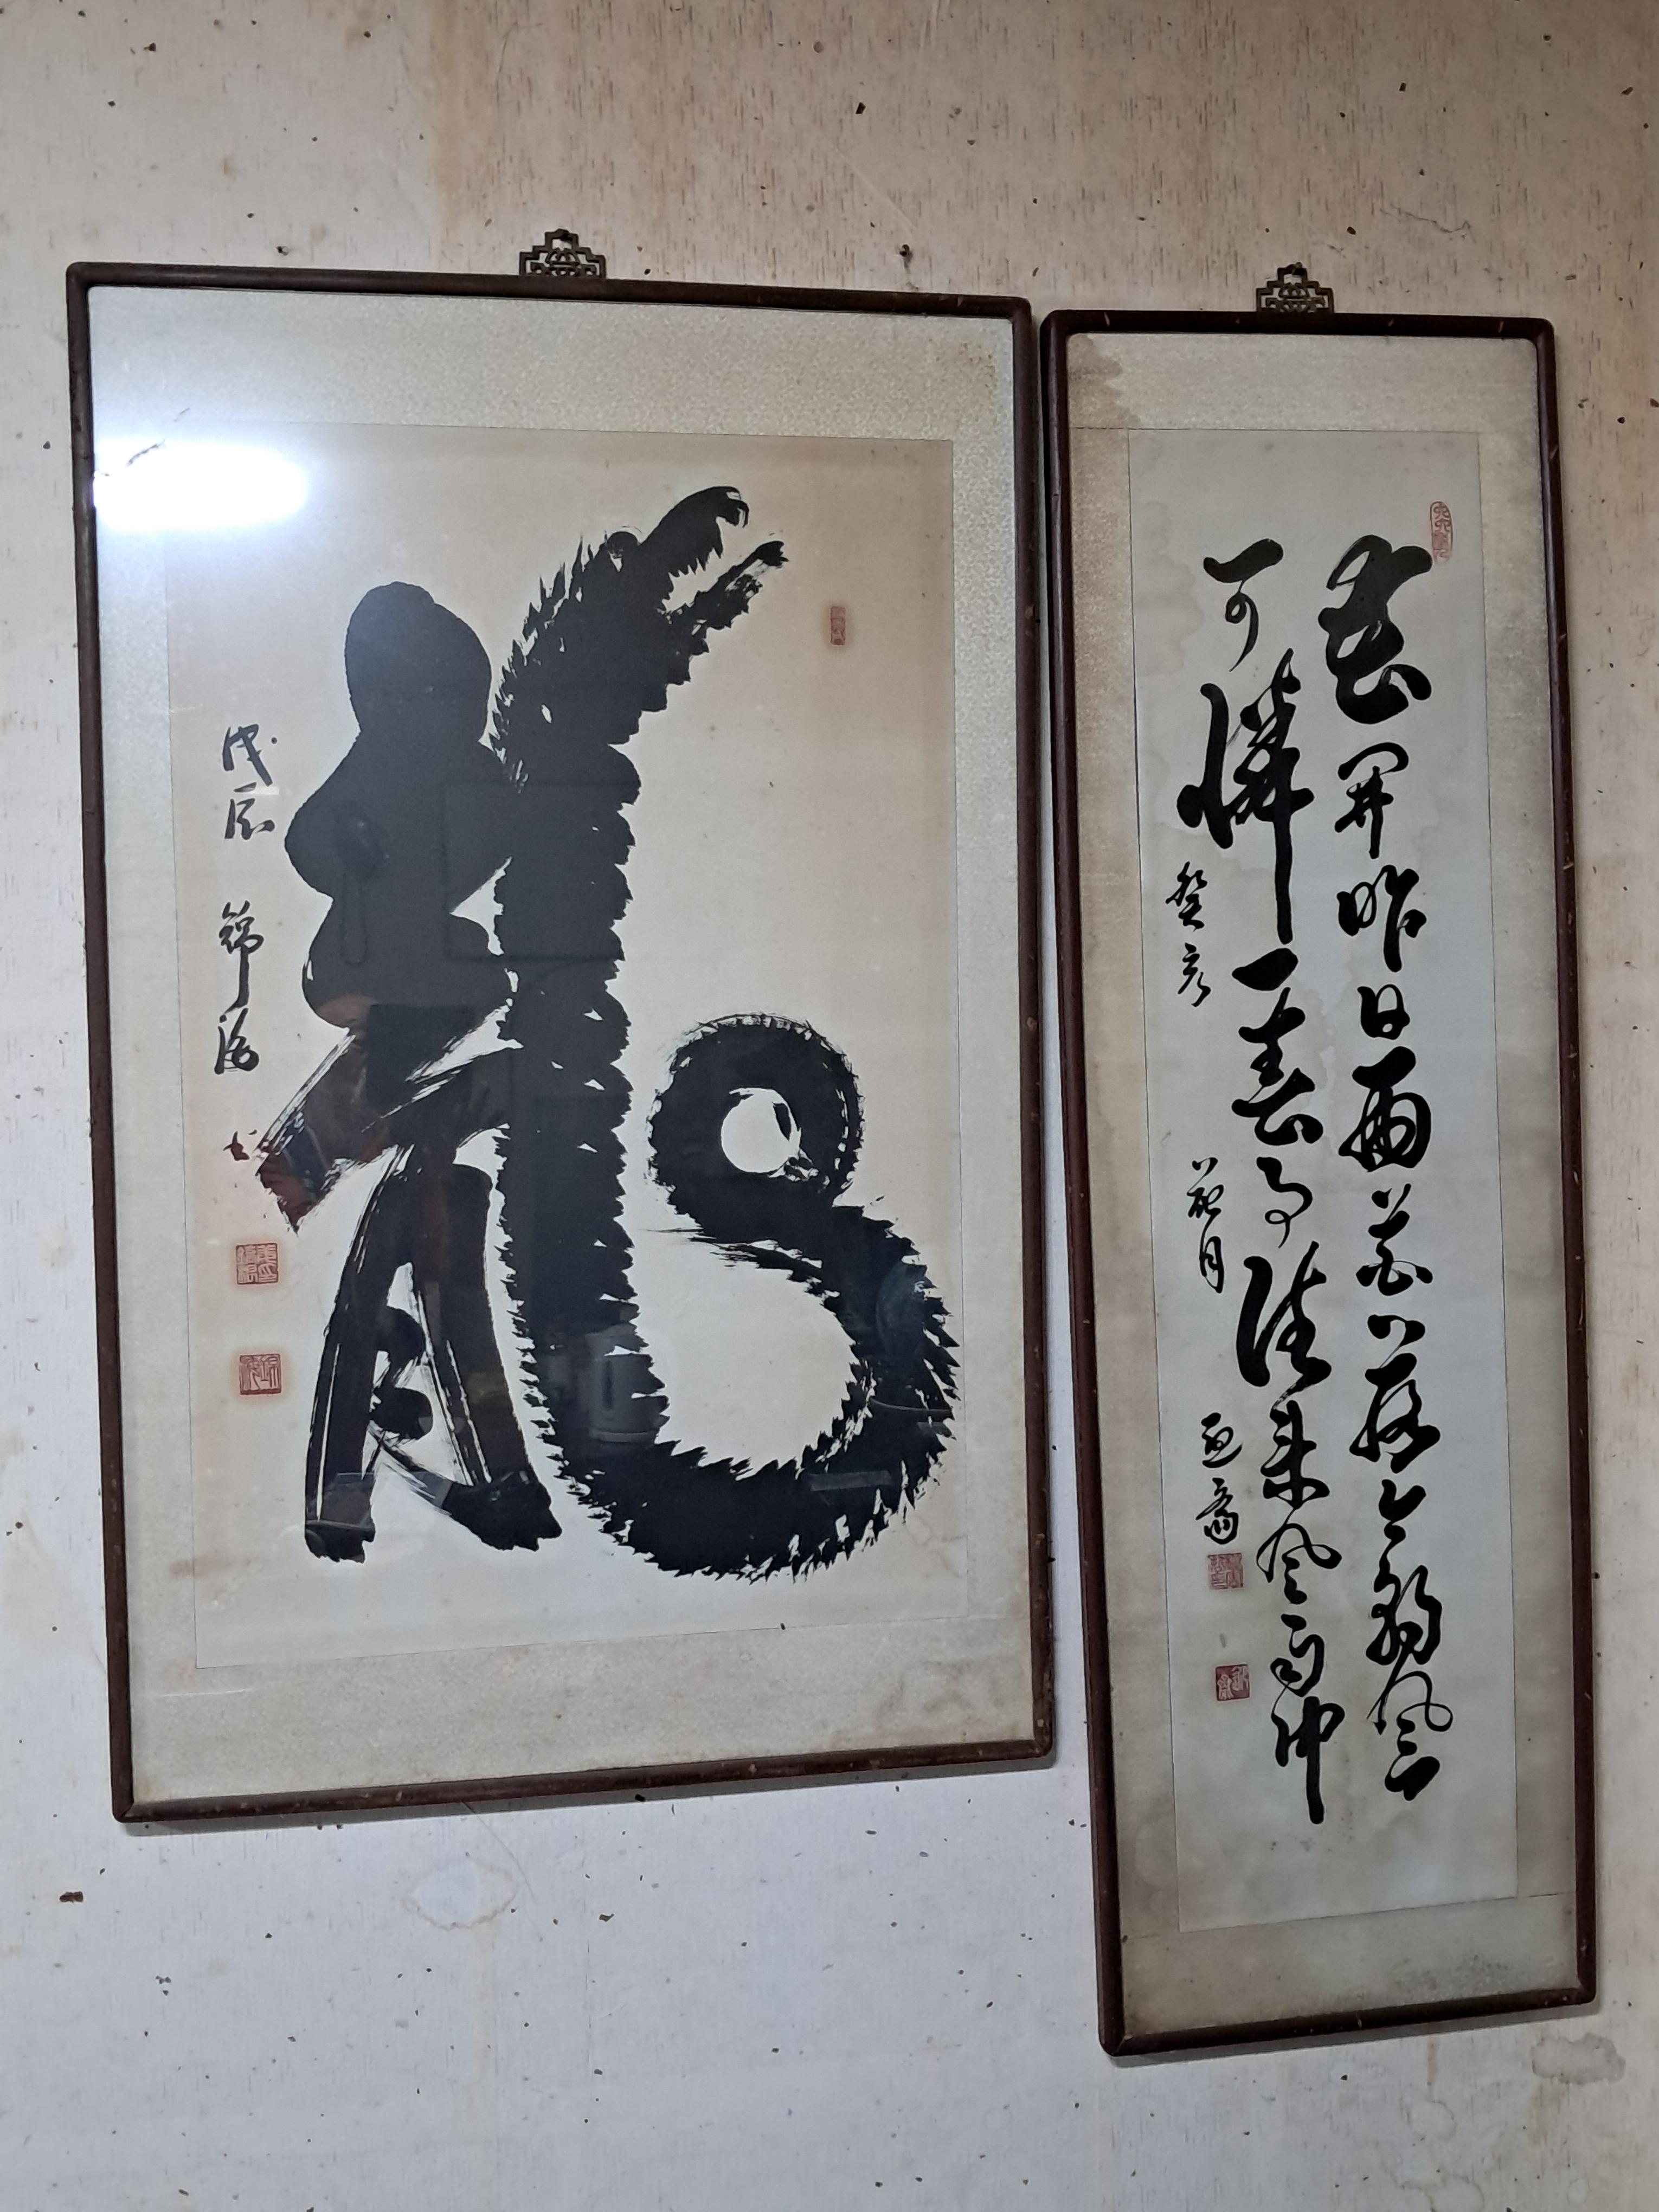 龍
戊辰
花開昨日雨花落今朝風
可憐一春事往來風雨中
癸亥 花月